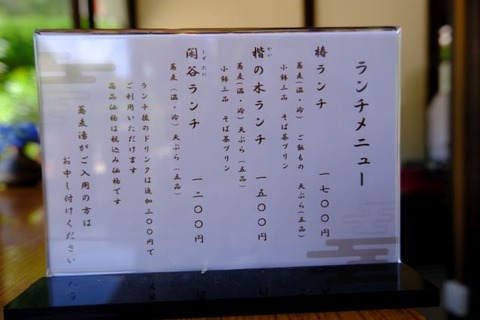 ランチメニュー
椿ランチ 一七〇〇円
蕎麦(温・冷) ご飯もの 天ぷら(五品)
小鉢三品 そば茶プリン
楷の木ランチ 一五〇〇円
かい
蕎麦(温・冷) 天ぷら(五品)
小鉢三品 そば茶プリン
閑谷ランチ 一二〇〇円
しずたに
蕎麦(温・冷) 天ぷら(五品)
ランチ後のドリンクは追加三〇〇円で
ご利用いただけます
商品価格は税込み価格です
蕎麦湯がご入用の方は
お申し付けください